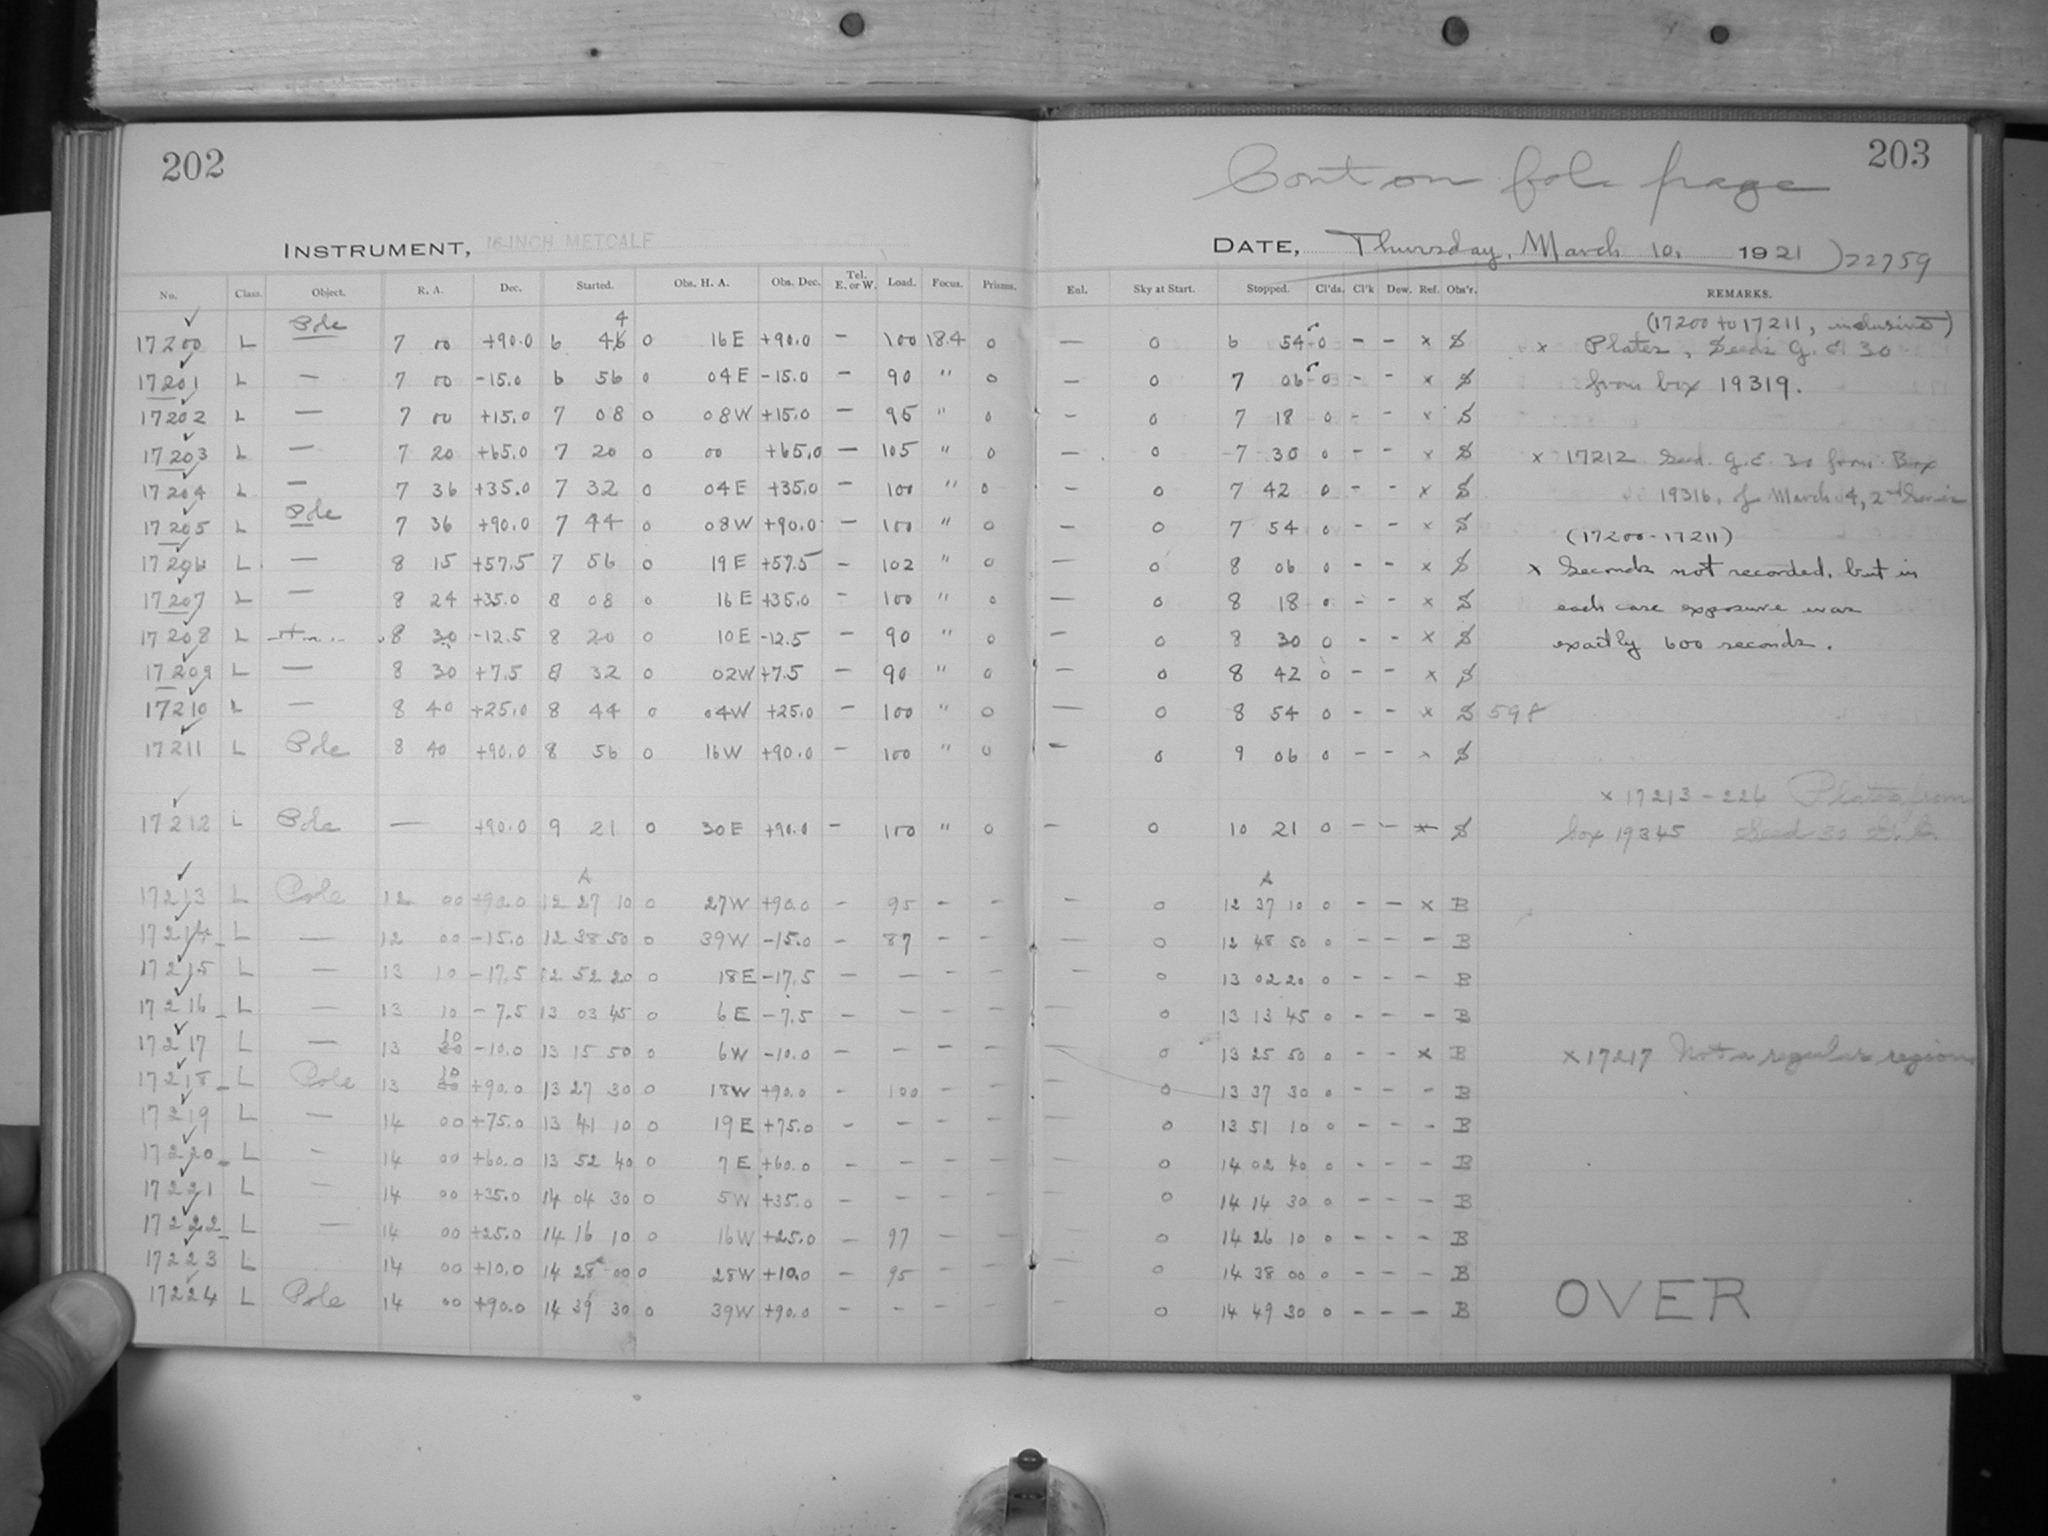 202
203
Cont on fol. page
INSTRUMENT, 16-INCH METCALF
DATE, Thursday, March 10, 1921 ) 22759
No. Class. Object. R. A. Dec. Started. Obs. H. A. Obs. Dec. Tel. E. or W. Load. Focus. Prisms. Enl. Sky at Start. Stopped. Cl'ds. Cl'k Dew. Ref. Obs'r. REMARKS.
17200 L Pole 7 00 +90.0 6 44 0 16 E +90.0 — 100 18.4 0 — 0 6 54 0 – – x S (17200 to 17211, inclusive) x Plates, Seeds G. E. 30
17201 L — 7 00 -15.0 6 56 0 04 E -15.0 — 90 " 0 — 0 7 06 0 – – x S from box 19319.
17202 L — 7 00 +15.0 7 08 0 08 W +15.0 — 95 " 0 — 0 7 18 0 – – x S
17203 L — 7 20 +65.0 7 20 0 00 +65.0 — 105 " 0 — 0 7 30 0 – – x S x 17212 Seed. G. E. 30 from Box
17204 L — 7 36 +35.0 7 32 0 04 E +35.0 — 100 " 0 — 0 7 42 0 – – x S 19316, of March 4, 2nd Series
17205 L Pole 7 36 +90.0 7 44 0 08 W +90.0 — 100 " 0 — 0 7 54 0 – – x S (17200-17211)
17206 L — 8 15 +57.5 7 56 0 19 E +57.5 — 102 " 0 — 0 8 06 0 – – x S x Seconds not recorded, but in
17207 L — 8 24 +35.0 8 08 0 16 E +35.0 — 100 " 0 — 0 8 18 0 – – x S each case exposure was
17208 L 8 30 -12.5 8 20 0 10 E -12.5 — 90 " 0 — 0 8 30 0 – – x S exactly 600 seconds.
17209 L — 8 30 +7.5 8 32 0 02 W +7.5 — 90 " 0 — 0 8 42 0 – – x S
17210 L — 8 40 +25.0 8 44 0 04 W +25.0 — 100 " 0 — 0 8 54 0 – – x S 598
17211 L Pole 8 40 +90.0 8 56 0 16 W +90.0 — 100 " 0 — 0 9 06 0 – – x S
x 17213-226 Plates from
17212 L Pole — +90.0 9 21 0 30 E +90.0 — 100 " 0 — 0 10 21 0 – – x S box 19345 Seed 30 G. E.
A A
17213 L Pole 12 00 +90.0 12 27 10 0 27 W +90.0 — 95 – – — 0 12 37 10 0 – – x B
17214 L — 12 00 -15.0 12 38 50 0 39 W -15.0 — 87 – – — 0 12 48 50 0 – – – B
17215 L — 13 10 -17.5 12 52 20 0 18 E -17.5 — – – – — 0 13 02 20 0 – – – B
17216 L — 13 10 -7.5 13 03 45 0 6 E -7.5 — – – – — 0 13 13 45 0 – – – B
17217 L — 13 10 -10.0 13 15 50 0 6 W -10.0 — – – – — 0 13 25 50 0 – – x B x 17217 Not a regular region
17218 L Pole 13 10 +90.0 13 27 30 0 18 W +90.0 — 100 – – — 0 13 37 30 0 – – – B
17219 L — 14 00 +75.0 13 41 10 0 19 E +75.0 — – – – — 0 13 51 10 0 – – – B
17220 L — 14 00 +60.0 13 52 40 0 7 E +60.0 — – – – — 0 14 02 40 0 – – – B
17221 L — 14 00 +35.0 14 04 30 0 5 W +35.0 — – – – — 0 14 14 30 0 – – – B
17222 L — 14 00 +25.0 14 16 10 0 16 W +25.0 — 97 – – — 0 14 26 10 0 – – – B
17223 L 14 00 +10.0 14 28 00 0 28 W +10.0 — 95 – – — 0 14 38 00 0 – – – B
17224 L Pole 14 00 +90.0 14 39 30 0 39 W +90.0 — – – – — 0 14 49 30 0 – – – B OVER